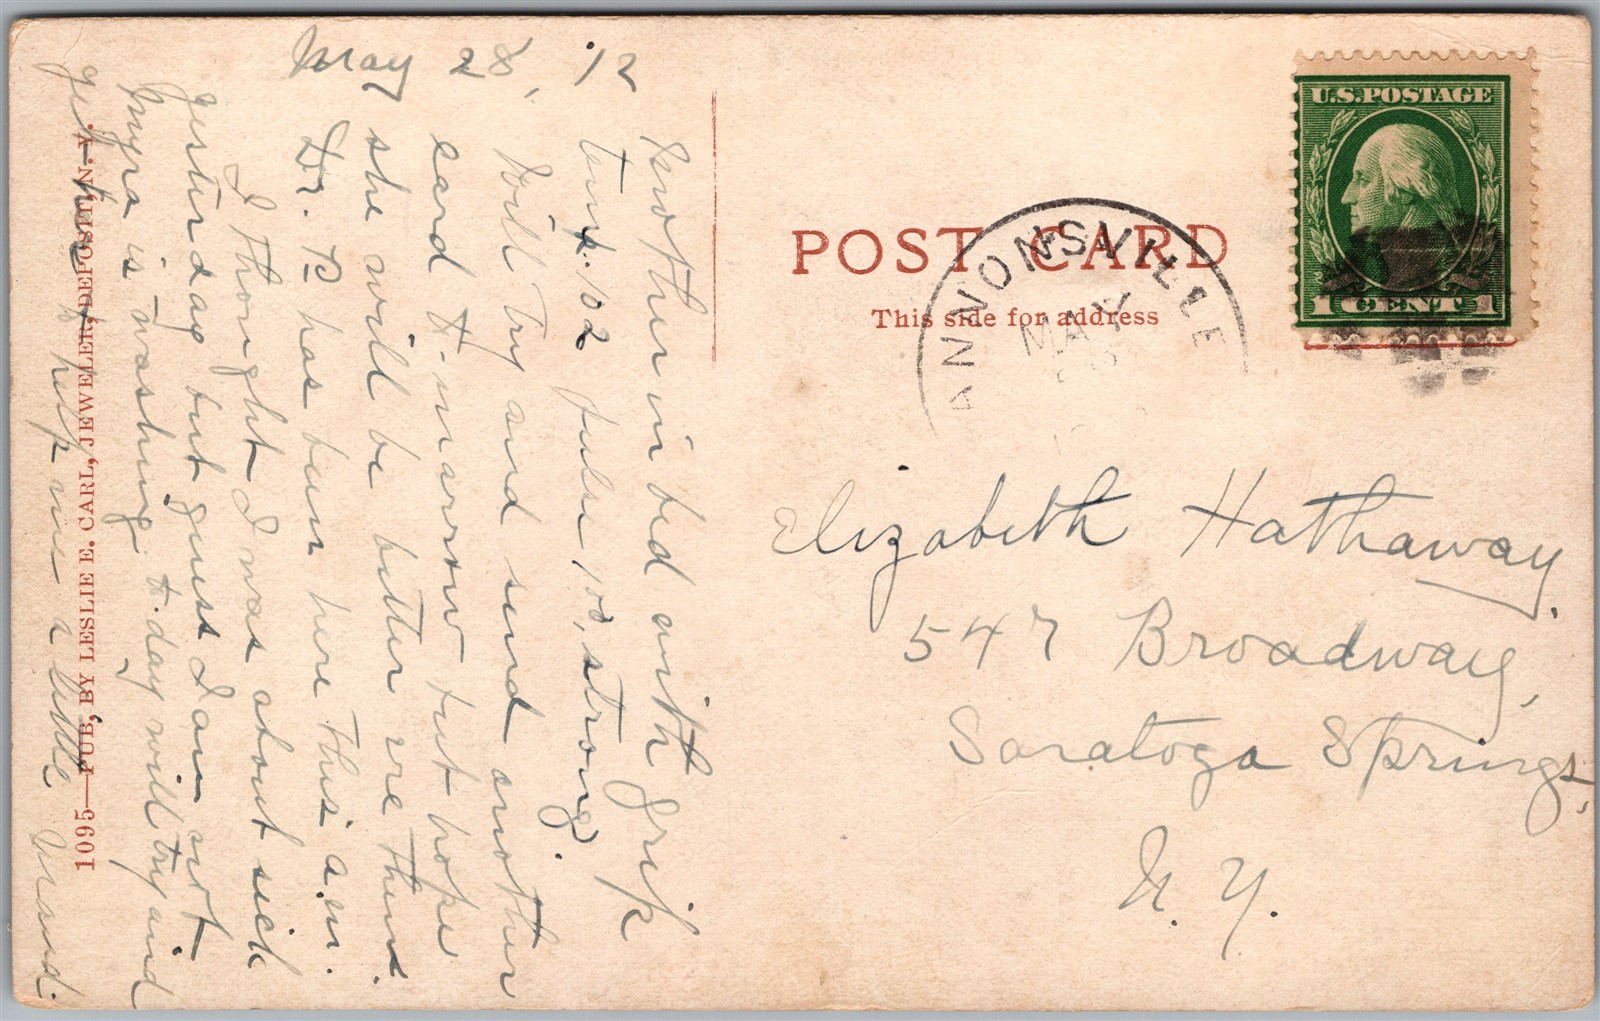 May 28, '12
Mother in bed with grip
temp. 102 pulse 100, strong.
Will try and send another
card to-morrow but hope
she will be better ere then.
Dr. P has been here this a.m.
I thought I was about sick
yesterday but guess I am not
Myra is washing to-day will try and
get her to help me a little
Maud.
1095—PUB, BY LESLIE E. CARL, JEWELER, DEPOSIT, N.Y.
POST CARD
This side for address
CANNONSVILLE
MAY
28
U.S. POSTAGE
1 CENT 1
Elizabeth Hathaway.
547 Broadway,
Saratoga Springs,
N. Y.